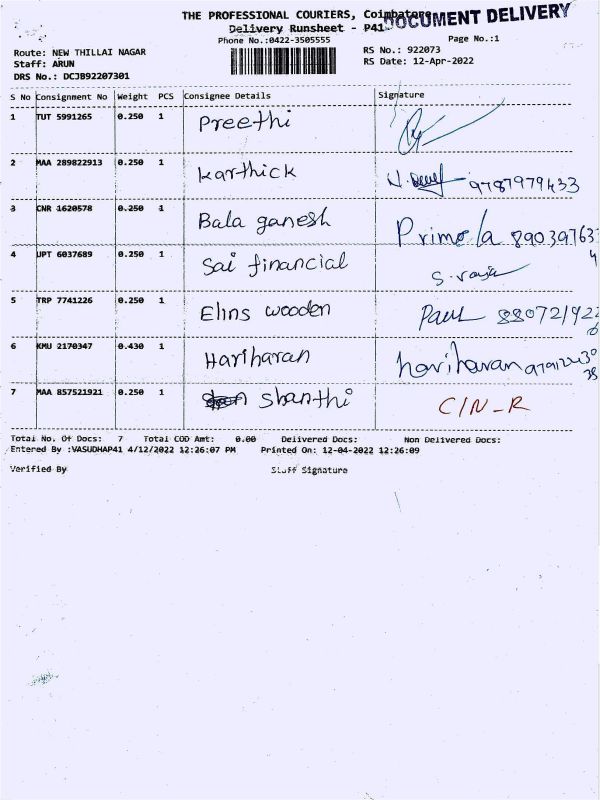 THE PROFESSIONAL COURIERS, Coimbatore
DOCUMENT DELIVERY
Delivery Runsheet - P41
Phone No.:0422-3505555
Page No.:1
Route: NEW THILLAI NAGAR
RS No.: 922073
Staff: ARUN
RS Date: 12-Apr-2022
DRS No.: DCJB92207301
S No Consignment No Weight PCS Consignee Details Signature
1 TUT 5991265 0.250 1 Preethi
2 MAA 289822913 0.250 1 Karthick 9787979433
3 CNR 1620578 0.250 1 Bala ganesh Primola 89039763
4 UPT 6037689 0.250 1 Sai financial S.
5 TRP 7741226 0.250 1 Elins wooden Paul
6 KMU 2170347 0.430 1 Hariharan hariharan
7 MAA 857521921 0.250 1 Shanthi C/N-R
Total No. Of Docs: 7 Total COD Amt: 0.00 Delivered Docs: Non Delivered Docs:
Entered By :VASUDHAP41 4/12/2022 12:26:07 PM Printed On: 12-04-2022 12:26:09
Verified By Staff Signature